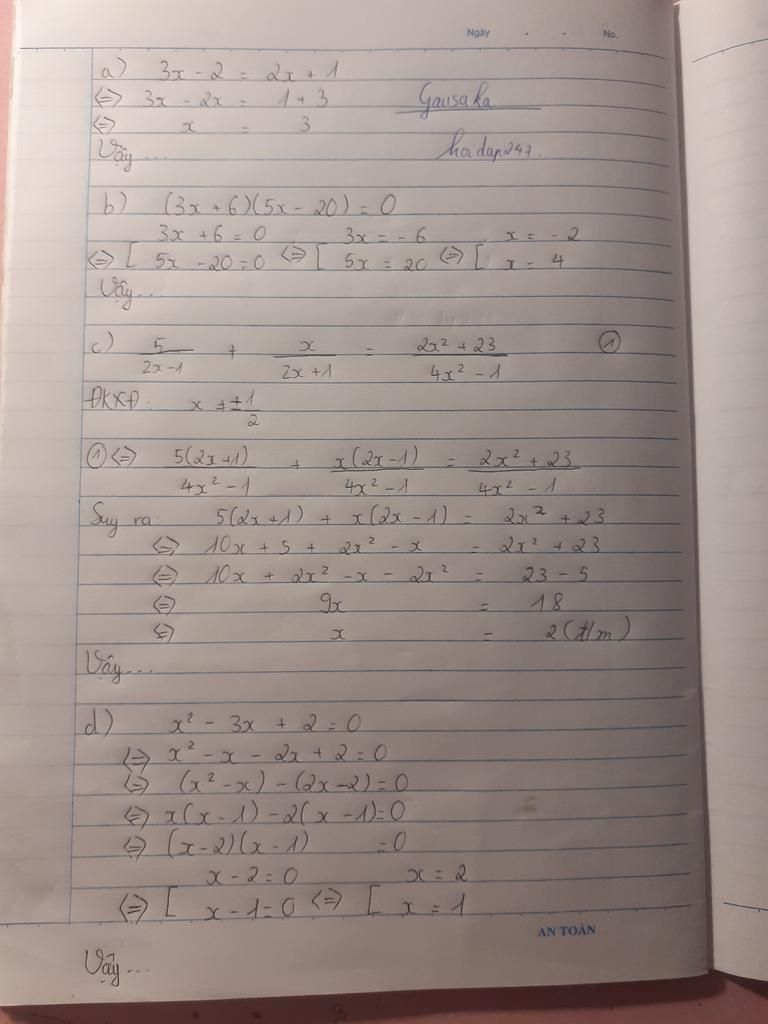 Ngày . . No.
a) 3x - 2 = 2x + 1
<=> 3x - 2x = 1 + 3 Gausaka
<=> x = 3
Vậy... hoidap247.
b) (3x + 6)(5x - 20) = 0
3x + 6 = 0 3x = -6 x = -2
<=> [ 5x - 20 = 0 <=> [ 5x = 20 <=> [ x = 4
Vậy...
c) 5/(2x-1) + x/(2x+1) = (2x² + 23)/(4x² - 1) ①
ĐKXĐ: x ≠ ±1/2
① <=> 5(2x+1)/(4x² - 1) + x(2x-1)/(4x² - 1) = (2x² + 23)/(4x² - 1)
Suy ra: 5(2x+1) + x(2x - 1) = 2x² + 23
<=> 10x + 5 + 2x² - x = 2x² + 23
<=> 10x + 2x² - x - 2x² = 23 - 5
<=> 9x = 18
<=> x = 2 (t/m)
Vậy...
d) x² - 3x + 2 = 0
<=> x² - x - 2x + 2 = 0
<=> (x² - x) - (2x - 2) = 0
<=> x(x - 1) - 2(x - 1) = 0
<=> (x - 2)(x - 1) = 0
x - 2 = 0 x = 2
<=> [ x - 1 = 0 <=> [ x = 1
AN TOÀN
Vậy...